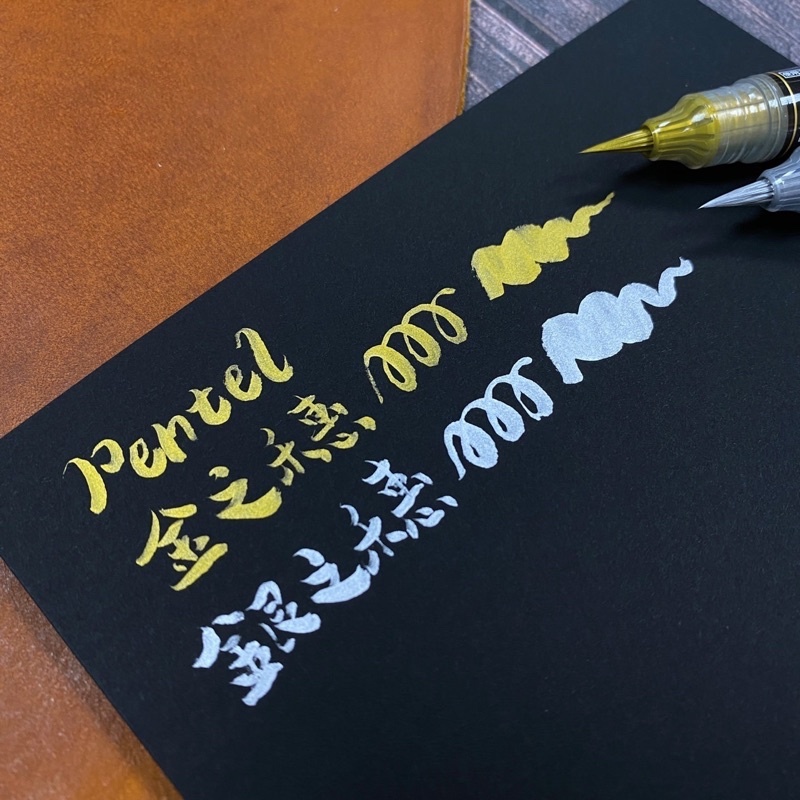 Pentel
金之穗
銀之穗